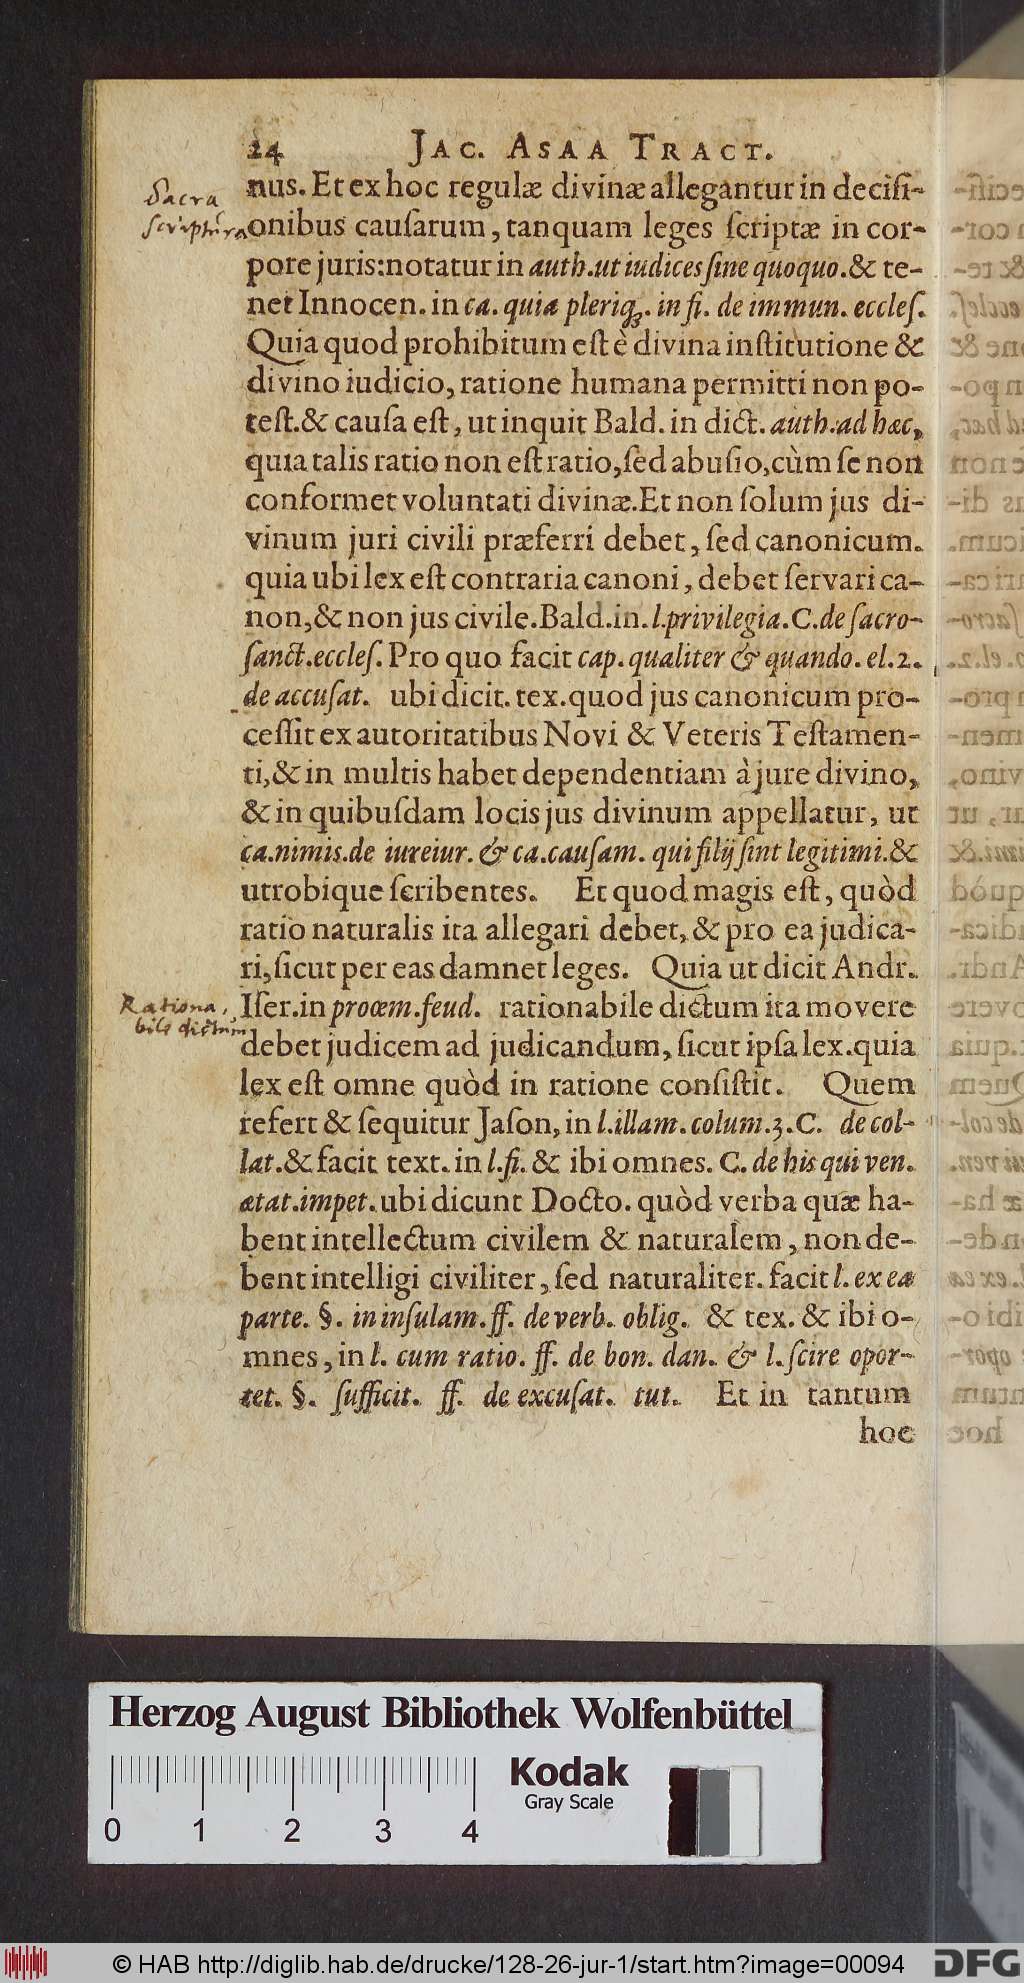 24 JAC. ASAA TRACT.
nus. Et ex hoc regulæ divinæ allegantur in deciſi-
onibus cauſarum, tanquam leges ſcriptæ in cor-
pore juris: notatur in auth. ut iudices ſine quoquo. & te-
net Innocen. in ca. quia pleriqꝫ. in fi. de immun. eccleſ.
Quia quod prohibitum eſt è divina inſtitutione &
divino iudicio, ratione humana permitti non po-
teſt. & cauſa eſt, ut inquit Bald. in dict. auth. ad hæc,
quia talis ratio non eſt ratio, ſed abuſio, cùm ſe non
conformet voluntati divinæ. Et non ſolum jus di-
vinum juri civili præferri debet, ſed canonicum.
quia ubi lex eſt contraria canoni, debet ſervari ca-
non, & non jus civile. Bald. in. l. privilegia. C. de ſacro-
ſanct. eccleſ. Pro quo facit cap. qualiter & quando. el. 2.
de accuſat. ubi dicit. tex. quod jus canonicum pro-
ceſſit ex autoritatibus Novi & Veteris Teſtamen-
ti, & in multis habet dependentiam à jure divino,
& in quibuſdam locis jus divinum appellatur, ut
ca. nimis. de iureiur. & ca. cauſam. qui filij ſint legitimi. &
utrobique ſcribentes. Et quod magis eſt, quòd
ratio naturalis ita allegari debet, & pro ea judica-
ri, ſicut per eas damnet leges. Quia ut dicit Andr.
Iſer. in proœm. feud. rationabile dictum ita movere
debet judicem ad judicandum, ſicut ipſa lex. quia
lex eſt omne quòd in ratione conſiſtit. Quem
refert & ſequitur Jaſon, in l. illam. colum. 3. C. de col-
lat. & facit text. in l. fi. & ibi omnes. C. de his qui ven.
ætat. impet. ubi dicunt Docto. quòd verba quæ ha-
bent intellectum civilem & naturalem, non de-
bent intelligi civiliter, ſed naturaliter. facit l. ex ea
parte. §. in inſulam. ff. de verb. oblig. & tex. & ibi o-
mnes, in l. cum ratio. ff. de bon. dan. & l. ſcire opor-
tet. §. ſufficit. ff. de excuſat. tut. Et in tantum
hoc
Sacra
Scriptura
Rationa,
bile dictum
Herzog August Bibliothek Wolfenbüttel
Kodak
Gray Scale
0 1 2 3 4
© HAB http://diglib.hab.de/drucke/128-26-jur-1/start.htm?image=00094
DFG